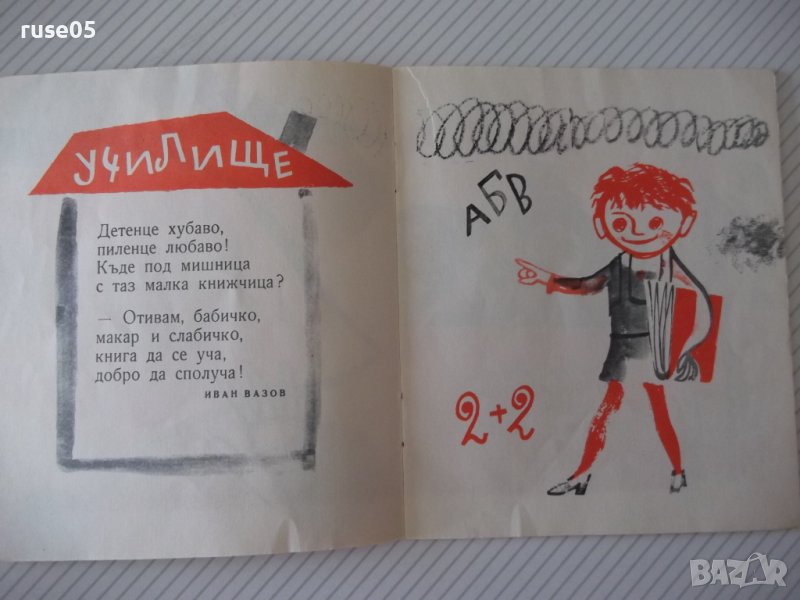 ruse05
УЧИЛИЩЕ
Детенце хубаво,
пиленце любаво!
Къде под мишница
с таз малка книжчица?
— Отивам, бабичко,
макар и слабичко,
книга да се уча,
добро да сполуча!
ИВАН ВАЗОВ
АБВ
2+2
BAZAR